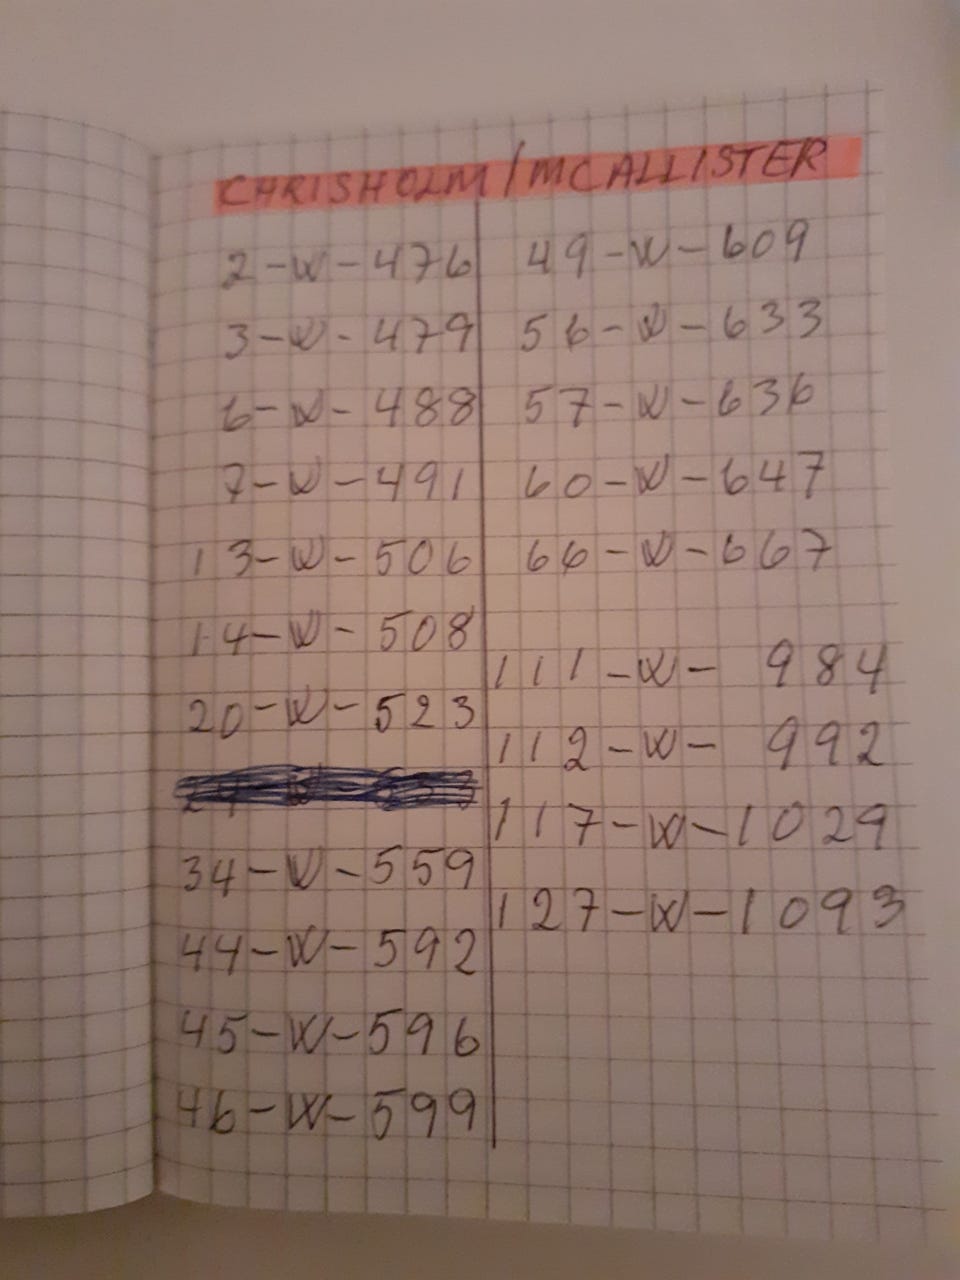 CHRISHOLM/MCALLISTER
2-W-476
3-W-479
6-W-488
7-W-491
13-W-506
14-W-508
20-W-523
34-W-559
44-W-592
45-W-596
46-W-599
49-W-609
56-W-633
57-W-636
60-W-647
66-W-667
111-W-984
112-W-992
117-W-1029
127-W-1093